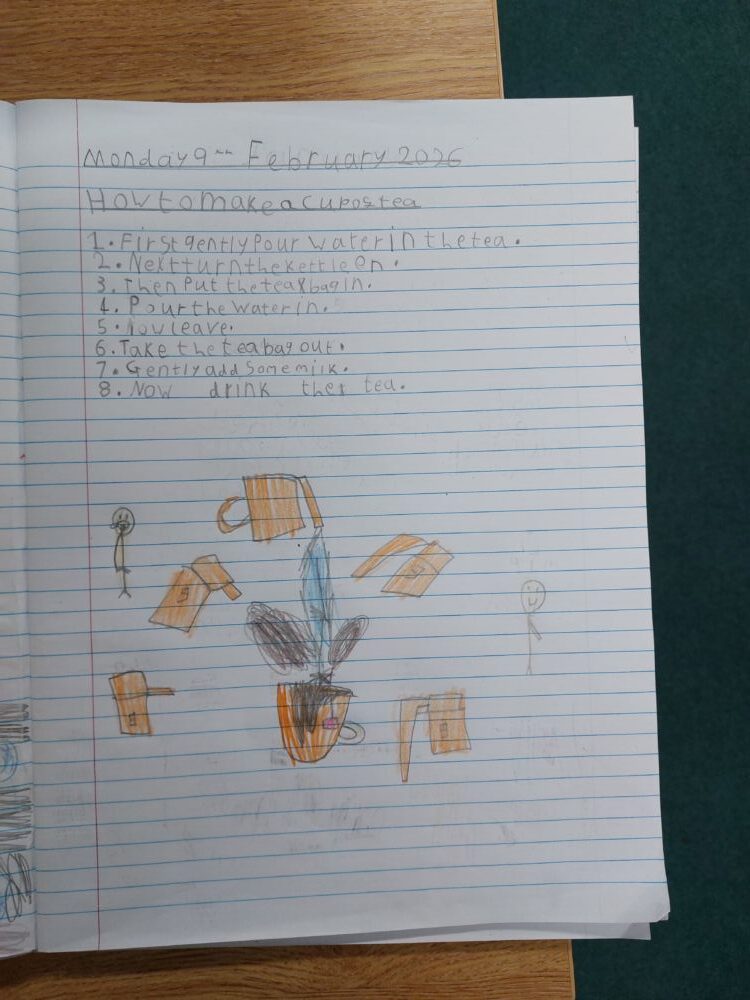 Monday 9th February 2026
How to make a cup os tea
1. First gently Pour water in the tea.
2. Next turn the kettle on.
3. Then Put the tea bag in.
4. Pour the water in.
5. Now leave.
6. Take the tea bag out.
7. Gently add some milk.
8. Now drink the tea.